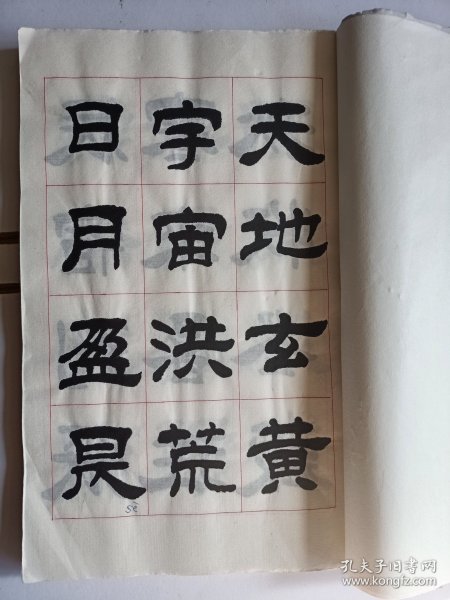 天地玄黄
宇宙洪荒
日月盈昃
孔夫子旧书网
www.kongfz.com